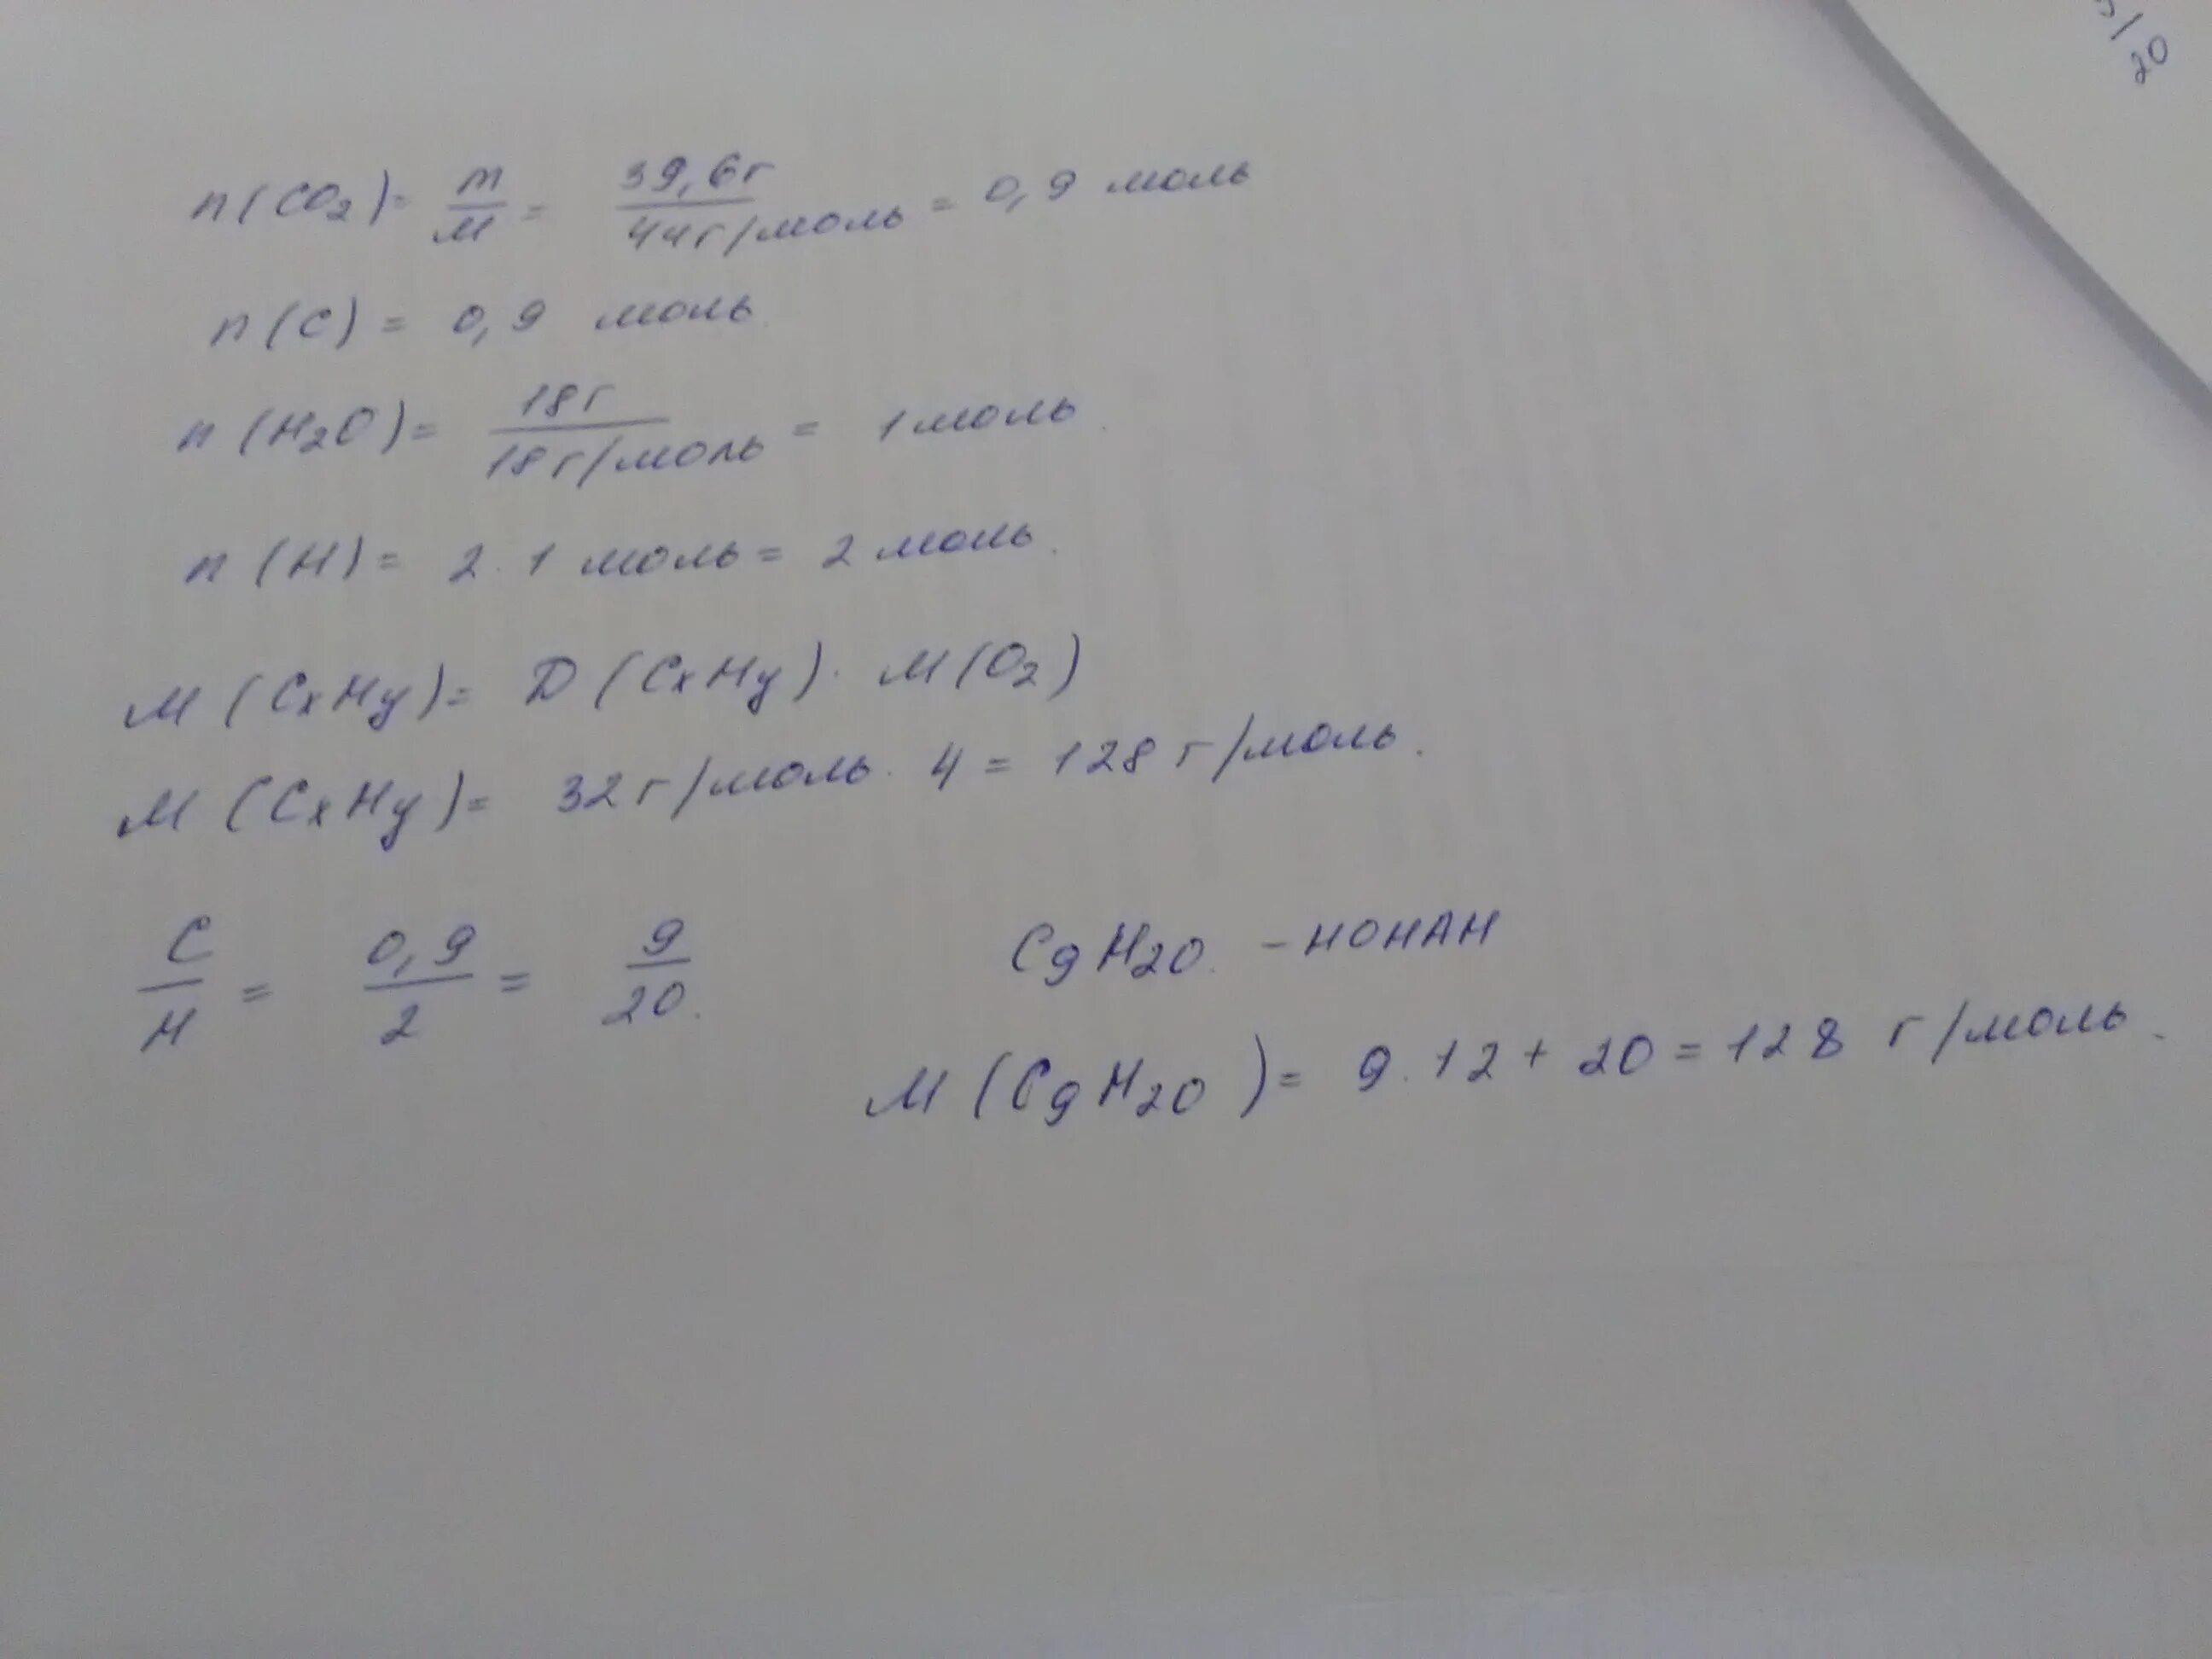 n(CO₂)= m/M = 39,6г / 44г/моль = 0,9 моль
n(C) = 0,9 моль
n(H₂O)= 18г / 18г/моль = 1 моль.
n(H)= 2·1 моль= 2 моль.
M(CxHy)= D(CxHy)· M(O₂)
M(CxHy)= 32г/моль· 4 = 128 г/моль.
C/H = 0,9/2 = 9/20.
C₉H₂₀. – НОНАН
M(C₉H₂₀)= 9·12+20=128 г/моль.
20